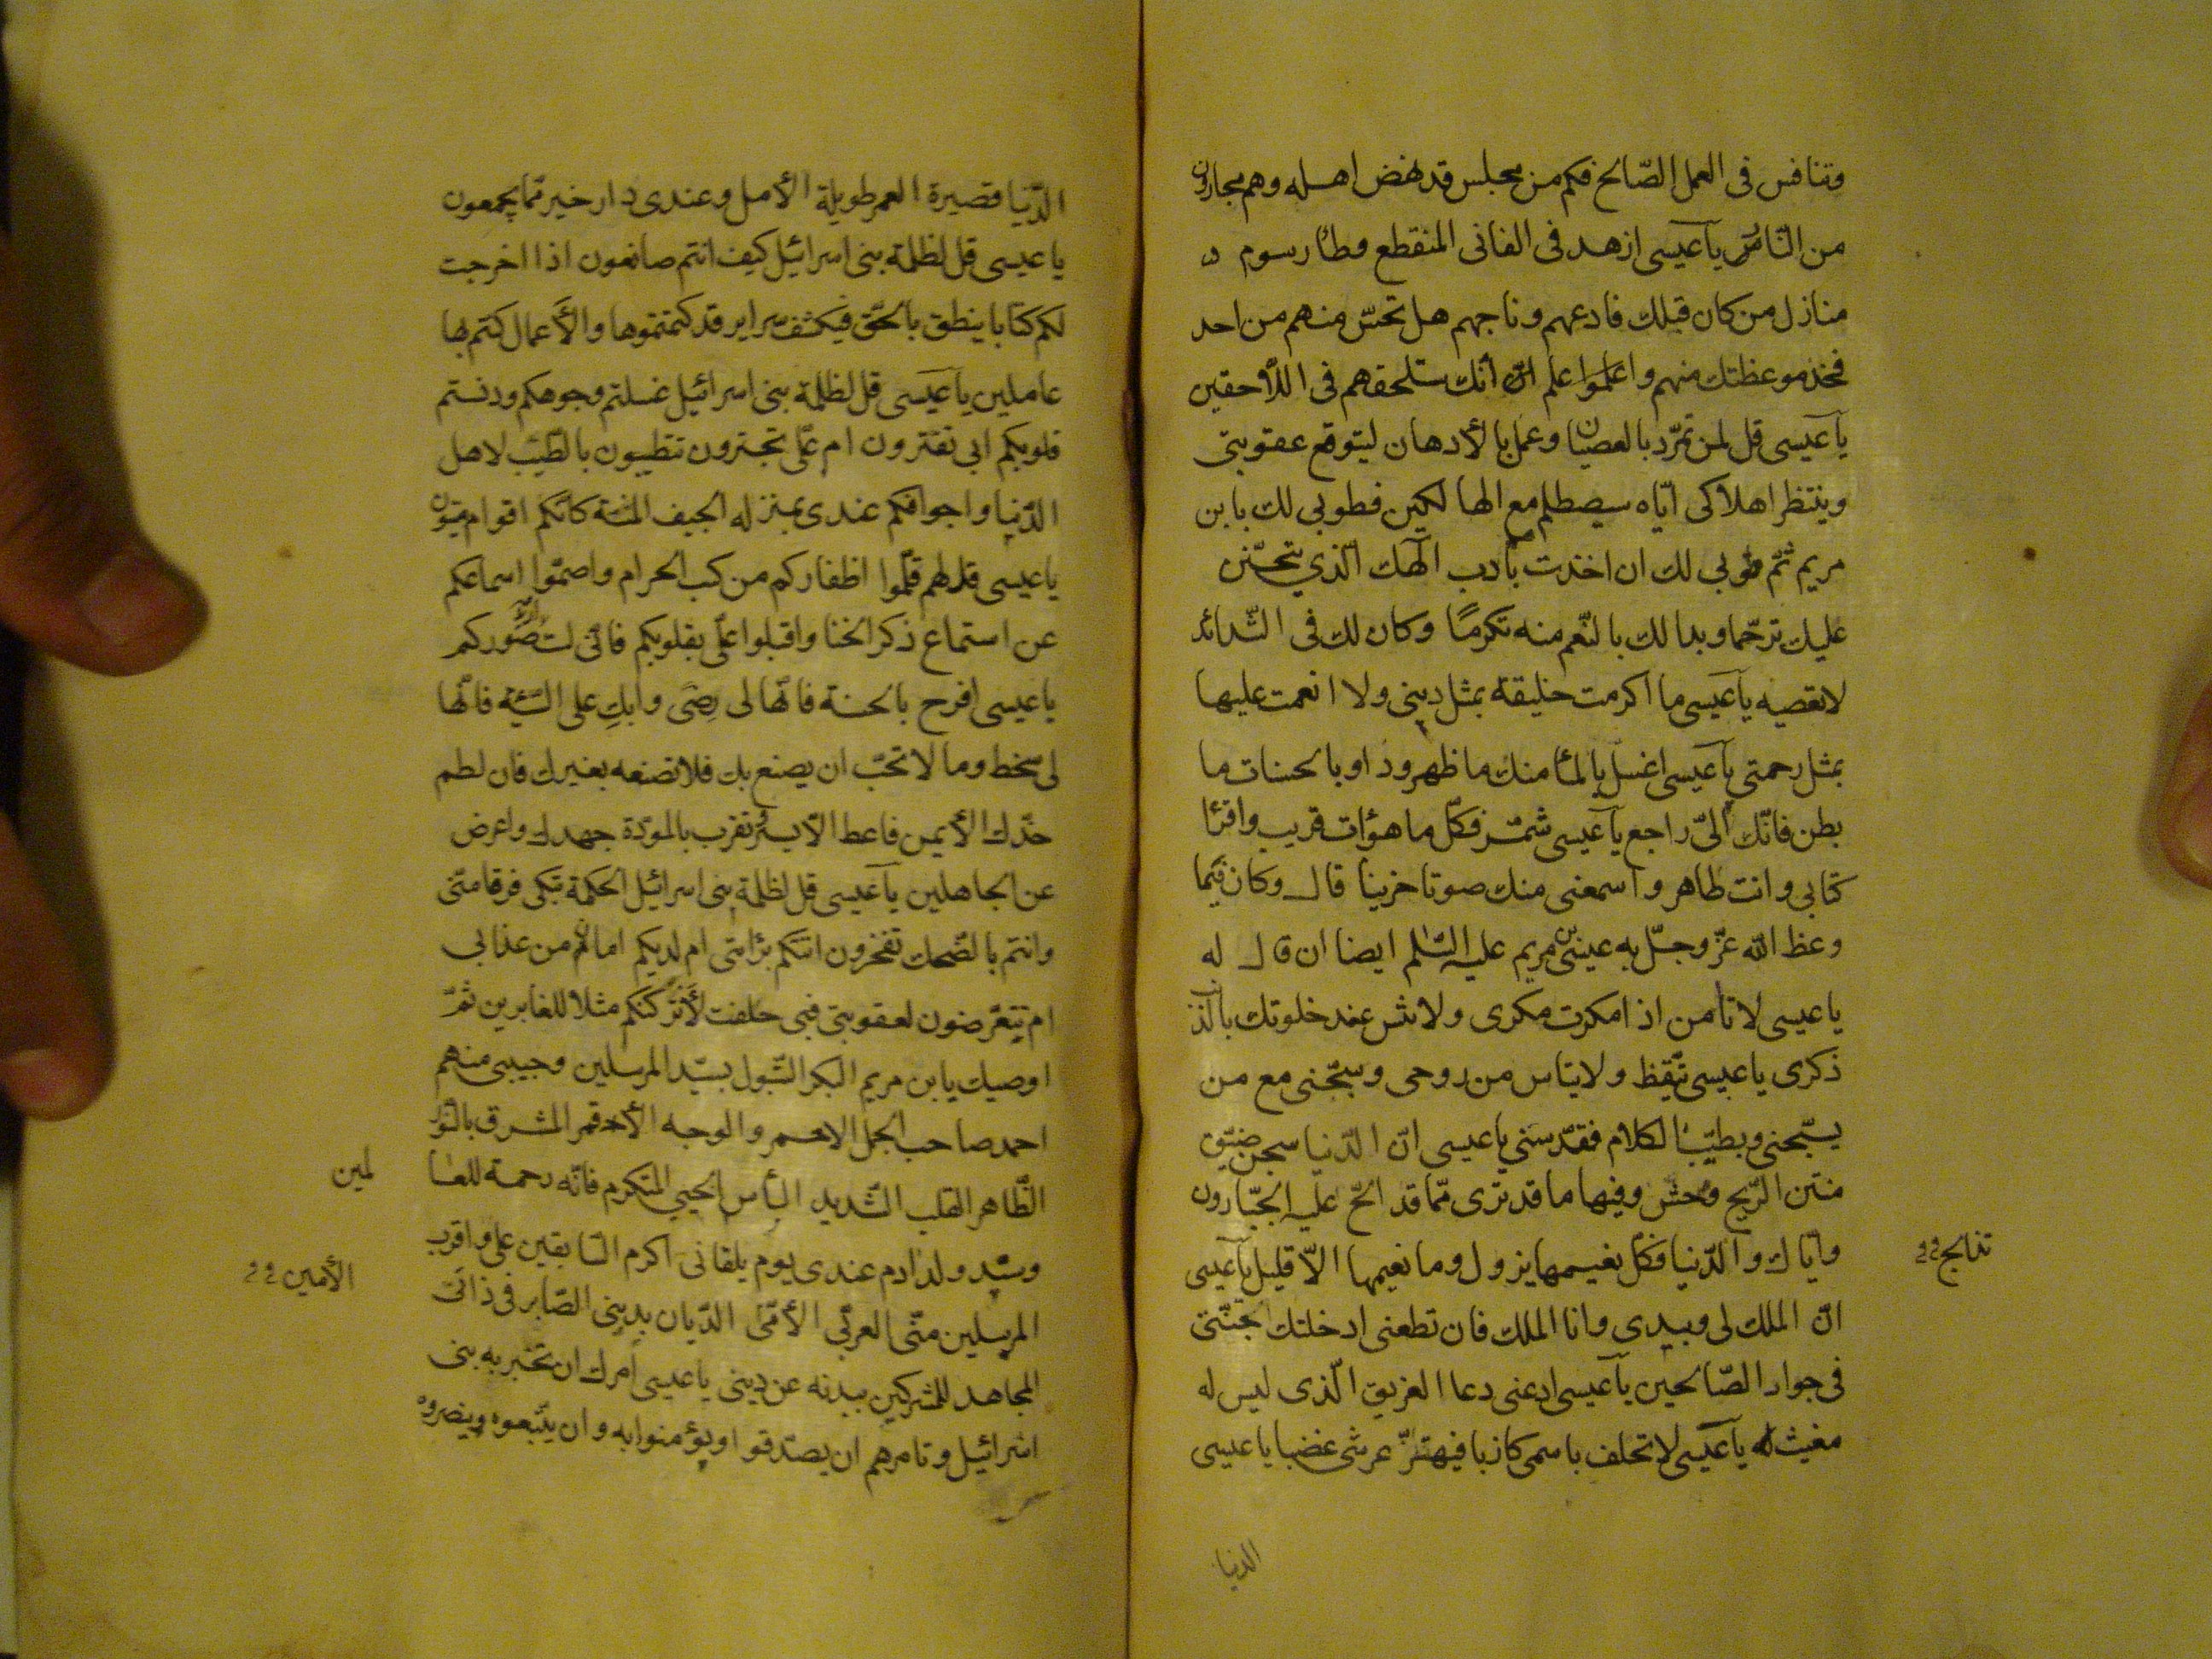 وتنافس فى العمل الصّالح فكم من مجلس قد نهض اهله وهم مجارون
من النّار يا عيسى ازهد فى الفانى المنقطع وطأ رسوم
منازل من كان قبلك فادعهم وناجهم هل تحسّ منهم من احد
فخذ موعظتك منهم واعلم انّك ستلحقهم فى اللّاحقين
يا عيسى قل لمن تمرّد بالعصيان وعمل بالأدهان ليتوقع عقوبتى
وينتظر اهلاكى ايّاه سيصطلم مع الهالكين فطوبى لك يا بن
مريم ثمّ طوبى لك ان اخذت بادب الهك الّذي يتحنّن
عليك ترحّما وبدا لك بالنّعم منه تكرمًا وكان لك فى الشّدائد
لا تعصيه يا عيسى ما اكرمت خليقة بمثل دينى ولا انعمت عليها
بمثل رحمتي يا عيسى اغسل بالمأ منك ما ظهر وداو بالحسنات ما
بطن فانّك الىّ راجع يا عيسى شمّر فكلّ ما هو ات قريب واقرأ
كتابى وانت طاهر واسمعنى منك صوتا حزينا قال وكان فيما
وعظ الله عزّ وجلّ به عيسى بن مريم عليه السّلم ايضا ان قال له
يا عيسى لا تأمن اذا مكرت مكرى ولا تنس عند خلوتك بالذنب
ذكرى يا عيسى تيقّظ ولا يتاس من روحى وسبّحنى مع من
يسبّحنى وبطيّب الكلام فقدّسنى يا عيسى انّ الدّنيا سجن ضيّق
منتن الرّيح وحش وفيها ما قد ترى ممّا قد الحّ عليه الجبّارون
وايّاك والدّنيا فكلّ نعيمها يزول وما نعيمها الاّ قليل يا عيسى
انّ الملك لى وبيدى وانا الملك فان تطعنى ادخلتك جنّتى
فى جوار الصّالحين يا عيسى ادعنى دعا الغريق الّذى ليس له
مغيث يا عيسى لا تحلف باسمى كاذبا فيهتزّ عرشى غضبا يا عيسى
الدنيا
الدّنيا قصيرة العمر طويلة الأمل وعندى دار خير ممّا يجمعون
يا عيسى قل لظلمة بنى اسرائيل كيف انتم صانعون اذا اخرجت
لكم كتابا ينطق بالحّق فيكشف سراير قد كتمتموها والأعمال كنتم بها
عاملين يا عيسى قل لظلمة بنى اسرائيل غسلتم وجوهكم ودنستم
قلوبكم ابى تفترون ام علىّ تجترون تتطيبون بالطّيب لاهل
الدّنيا واجوافكم عندى بمنزله الجيف المنتنة كانّكم اقوام ميتون
يا عيسى قل لهم قلّموا اظفاركم من كسب الحرام واصمّوا اسماعكم
عن استماع ذكر الخنا واقبلوا علىّ بقلوبكم فانّى لست اريد صوركم
يا عيسى افرح بالحسنة فانّها لى رضى وابك على السّيّئة فانّها
لى سخط وما لا تحبّ ان يصنع بك فلا تصنعه بغيرك فان لطم
خدّك الأيمن فاعط الأيسر وتقرب بالمودّة جهدك واعرض
عن الجاهلين يا عيسى قل لظلمة بنى اسرائيل الحكمة تبكى فرقا منّى
وانتم بالضّحك تفخرون اتتكم برأتى ام لديكم امان من عذابى
ام تتعرّضون لعقوبتى فبى حلفت لأتركنّكم مثلا للغابرين ثمّ
اوصيك يا بن مريم البكر البتّول بسيّد المرسلين وحبيبى منهم
احمد صاحب الجمل الاحمر والوجه الأقمر المشرق بالنّور
الطّاهر القلب الشّديد البأس الحيي المتكرم فانّه رحمة للعا
لمين
وسيّد ولد ادم عندى يوم يلقانى اكرم السّابقين علىّ واقرب
المرسلين منّى العربّي الأمّى الدّيان بدينى الصّابر فى ذاتى
الأمين
المجاهد للمشركين ببدنه عن دينى يا عيسى آمرك ان تخبر به بنى
اسرائيل وتامرهم ان يصدقوا ويؤمنوا به وان يتّبعوه وينصروه